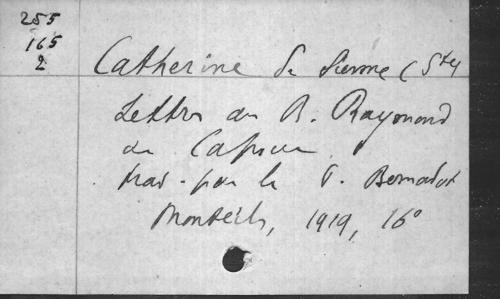 255
165
2
Catherine de Sienne (Ste)
Lettres au B. Raymond
de Capoue
trad. par le P. Bernadot
1919, 16°